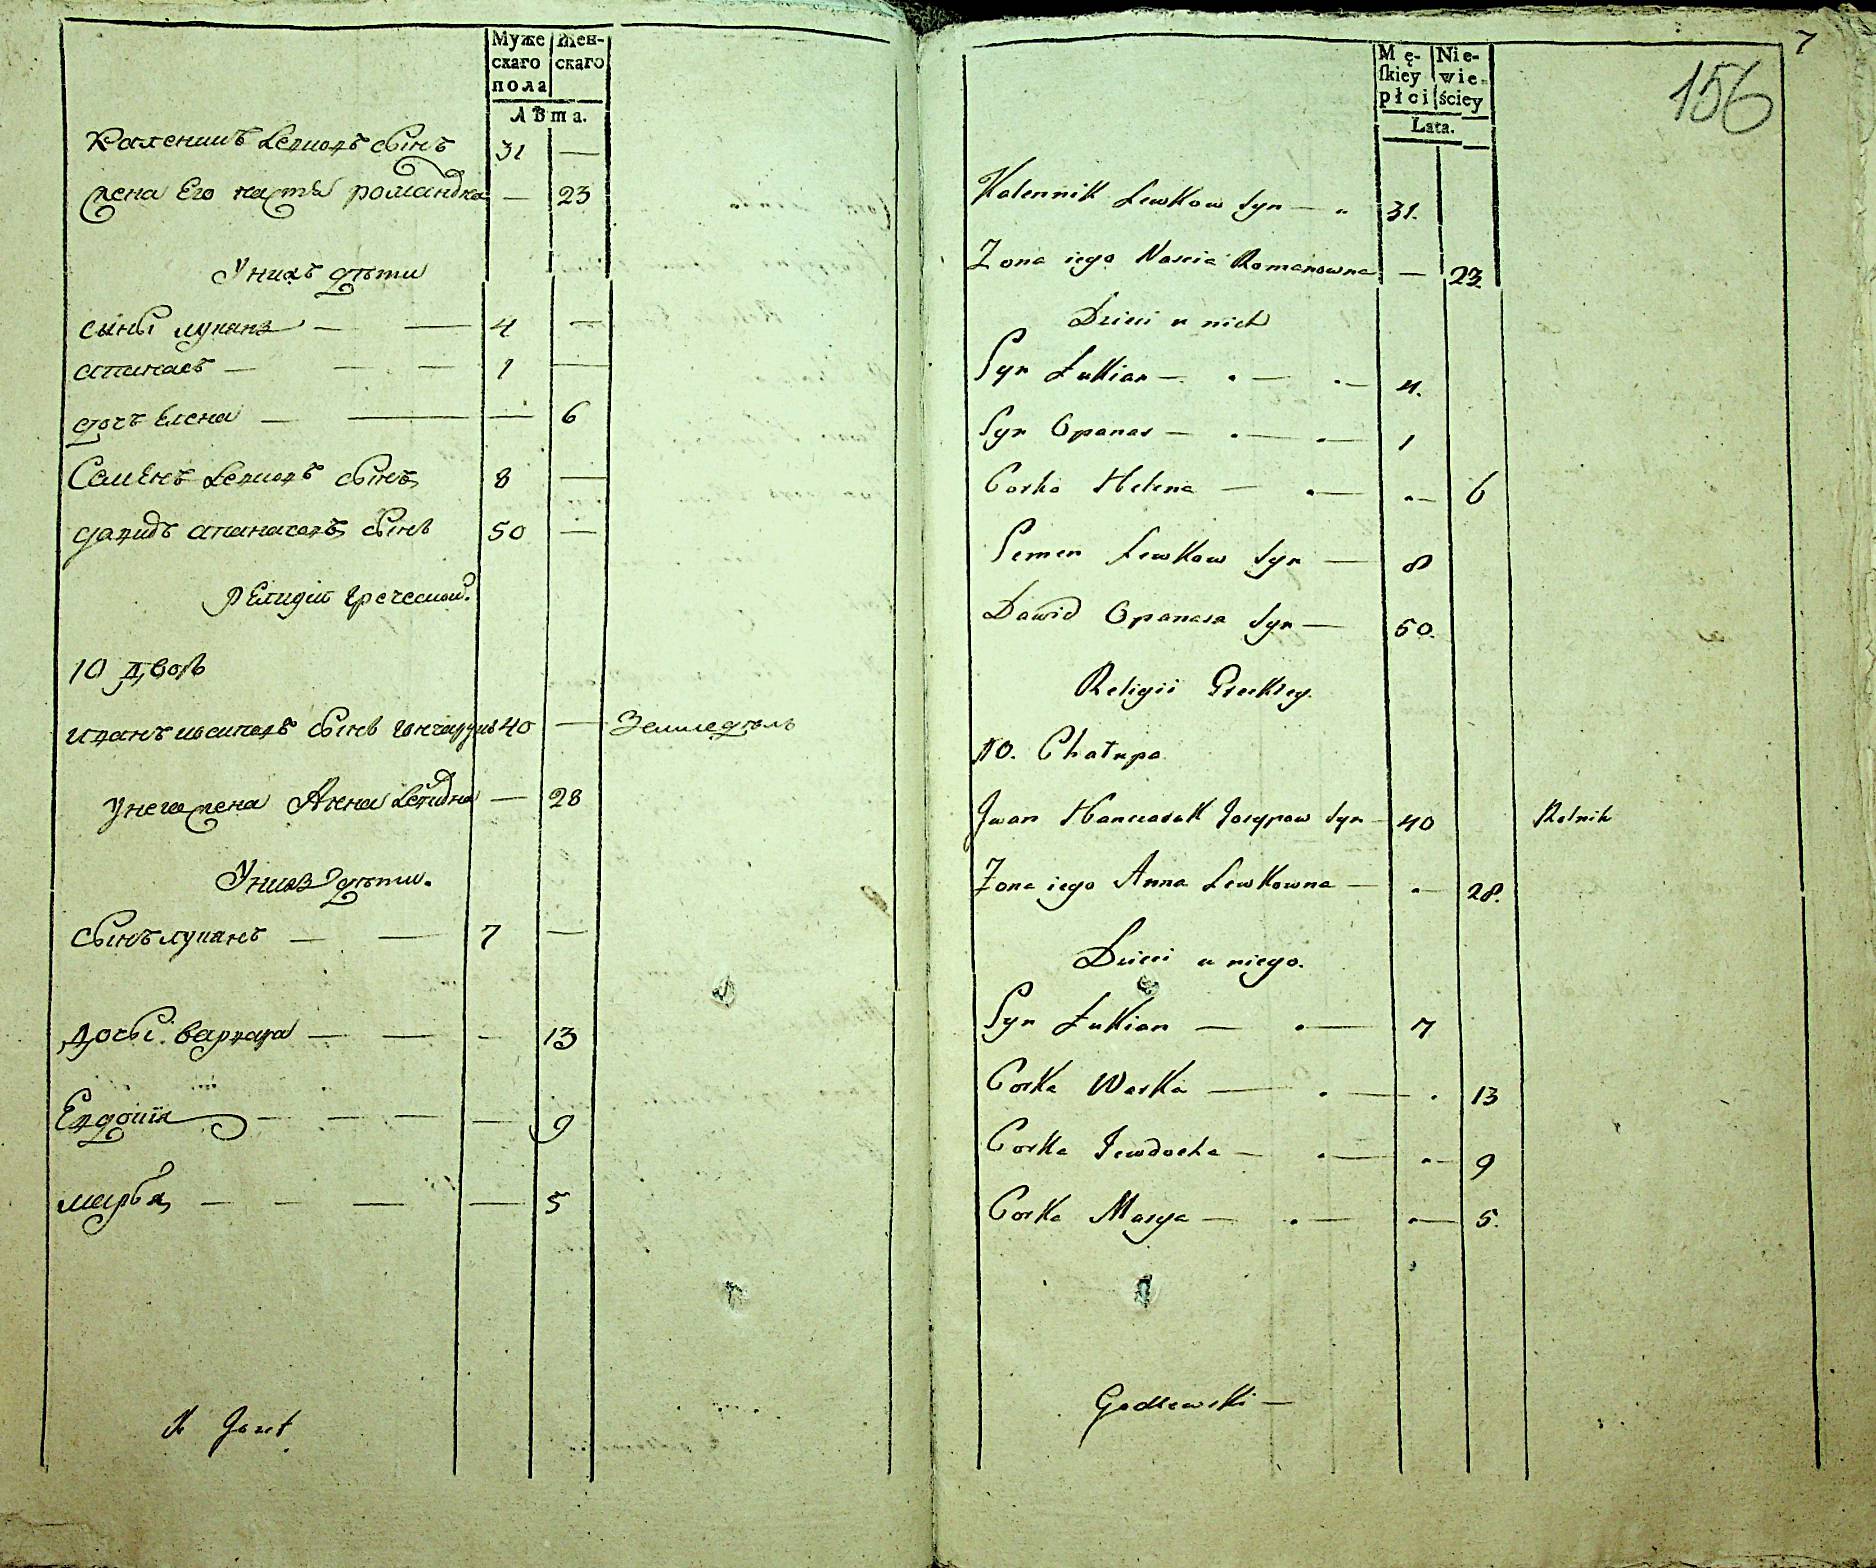 Муже
скаго
пола
Жен-
скаго
Лѣта.
Каленикъ Левковъ сынъ 31 —
жена Его настя романовна — 23
У нихъ дѣти
сыны лукянъ — — 4 —
апанасъ — — — 1 —
дочъ Елена — — — 6
Семенъ Левковъ сынъ 8 —
давидъ апанасовъ сынъ 50 —
рЕлигіи греческой.
10 дворъ
иванъ иосиповъ сынъ гончарукъ 40 — Земледѣль
у него жена Анна Левковна — 28
У нихъ дѣти.
сынъ лукянъ — — 7 —
дочьі варвара — — - 13
Евдокія — — — — 9
марья — — — — 5
X Jozef
7
156
Mę-
skiey
płci
Nie-
wie-
ściey
Lata.
Kalennik Lewkow syn — „ 31.
Zona iego Nascia Romanowna — 23
Dzieci u nich
Syn Łukian — . — . — 4.
Syn Opanas — . — . — 1
Corka Helena — . — . — 6
Semen Lewkow syn — 8
Dawid Opanasa syn — 50.
Religii Greckiey.
10. Chałupa
Jwan Hanczaruk Josypow syn — 40 Rolnik
Zona iego Anna Lewkowna — . — 28.
Dzieci u niego.
Syn Łukian — . — 7
Corka Warka — . — . 13
Corka Jewdocha — . — . — 9
Corka Marya — . — . — 5.
Godlewski —